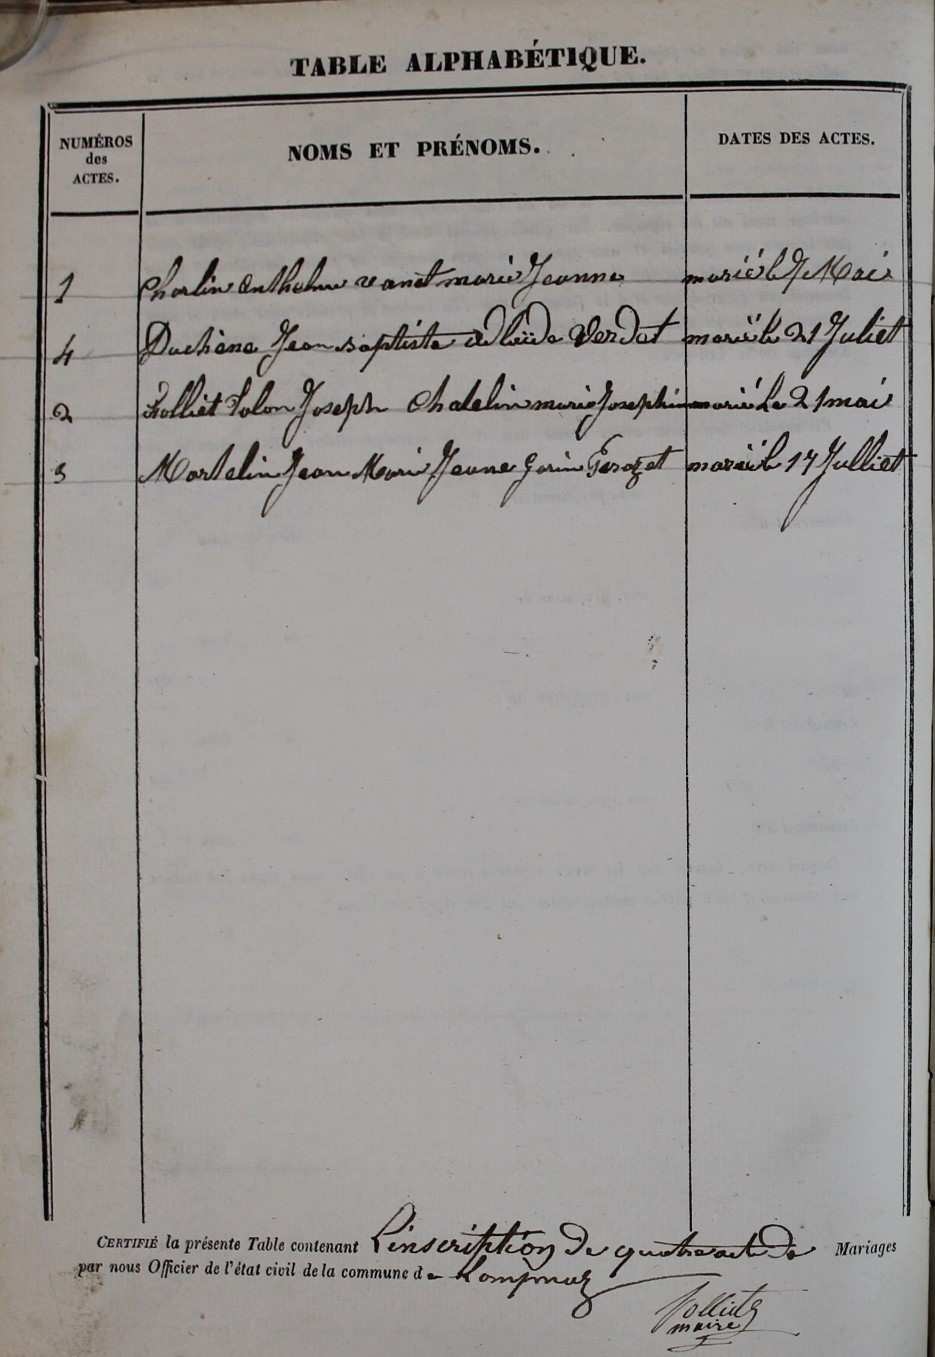 TABLE ALPHABÉTIQUE.
NUMÉROS
des
ACTES.
NOMS ET PRÉNOMS.
DATES DES ACTES.
1 Charlin Anthelme vanet marie Jeanne marié le 7 Mai
4 Duchêne Jean Baptiste adelèïde Verdet marié le 21 Juliet
2 Folliet Jolon Joseph Chatelin marie Josephine marié Le 21 mai
3 Martelin Jean Marie Jeanne Gorin Ferozet marié le 17 Julliet
CERTIFIÉ la présente Table contenant L'inscription de quatre act de Mariages
par nous Officier de l'état civil de la commune de Lompnaz
Folliet
maire